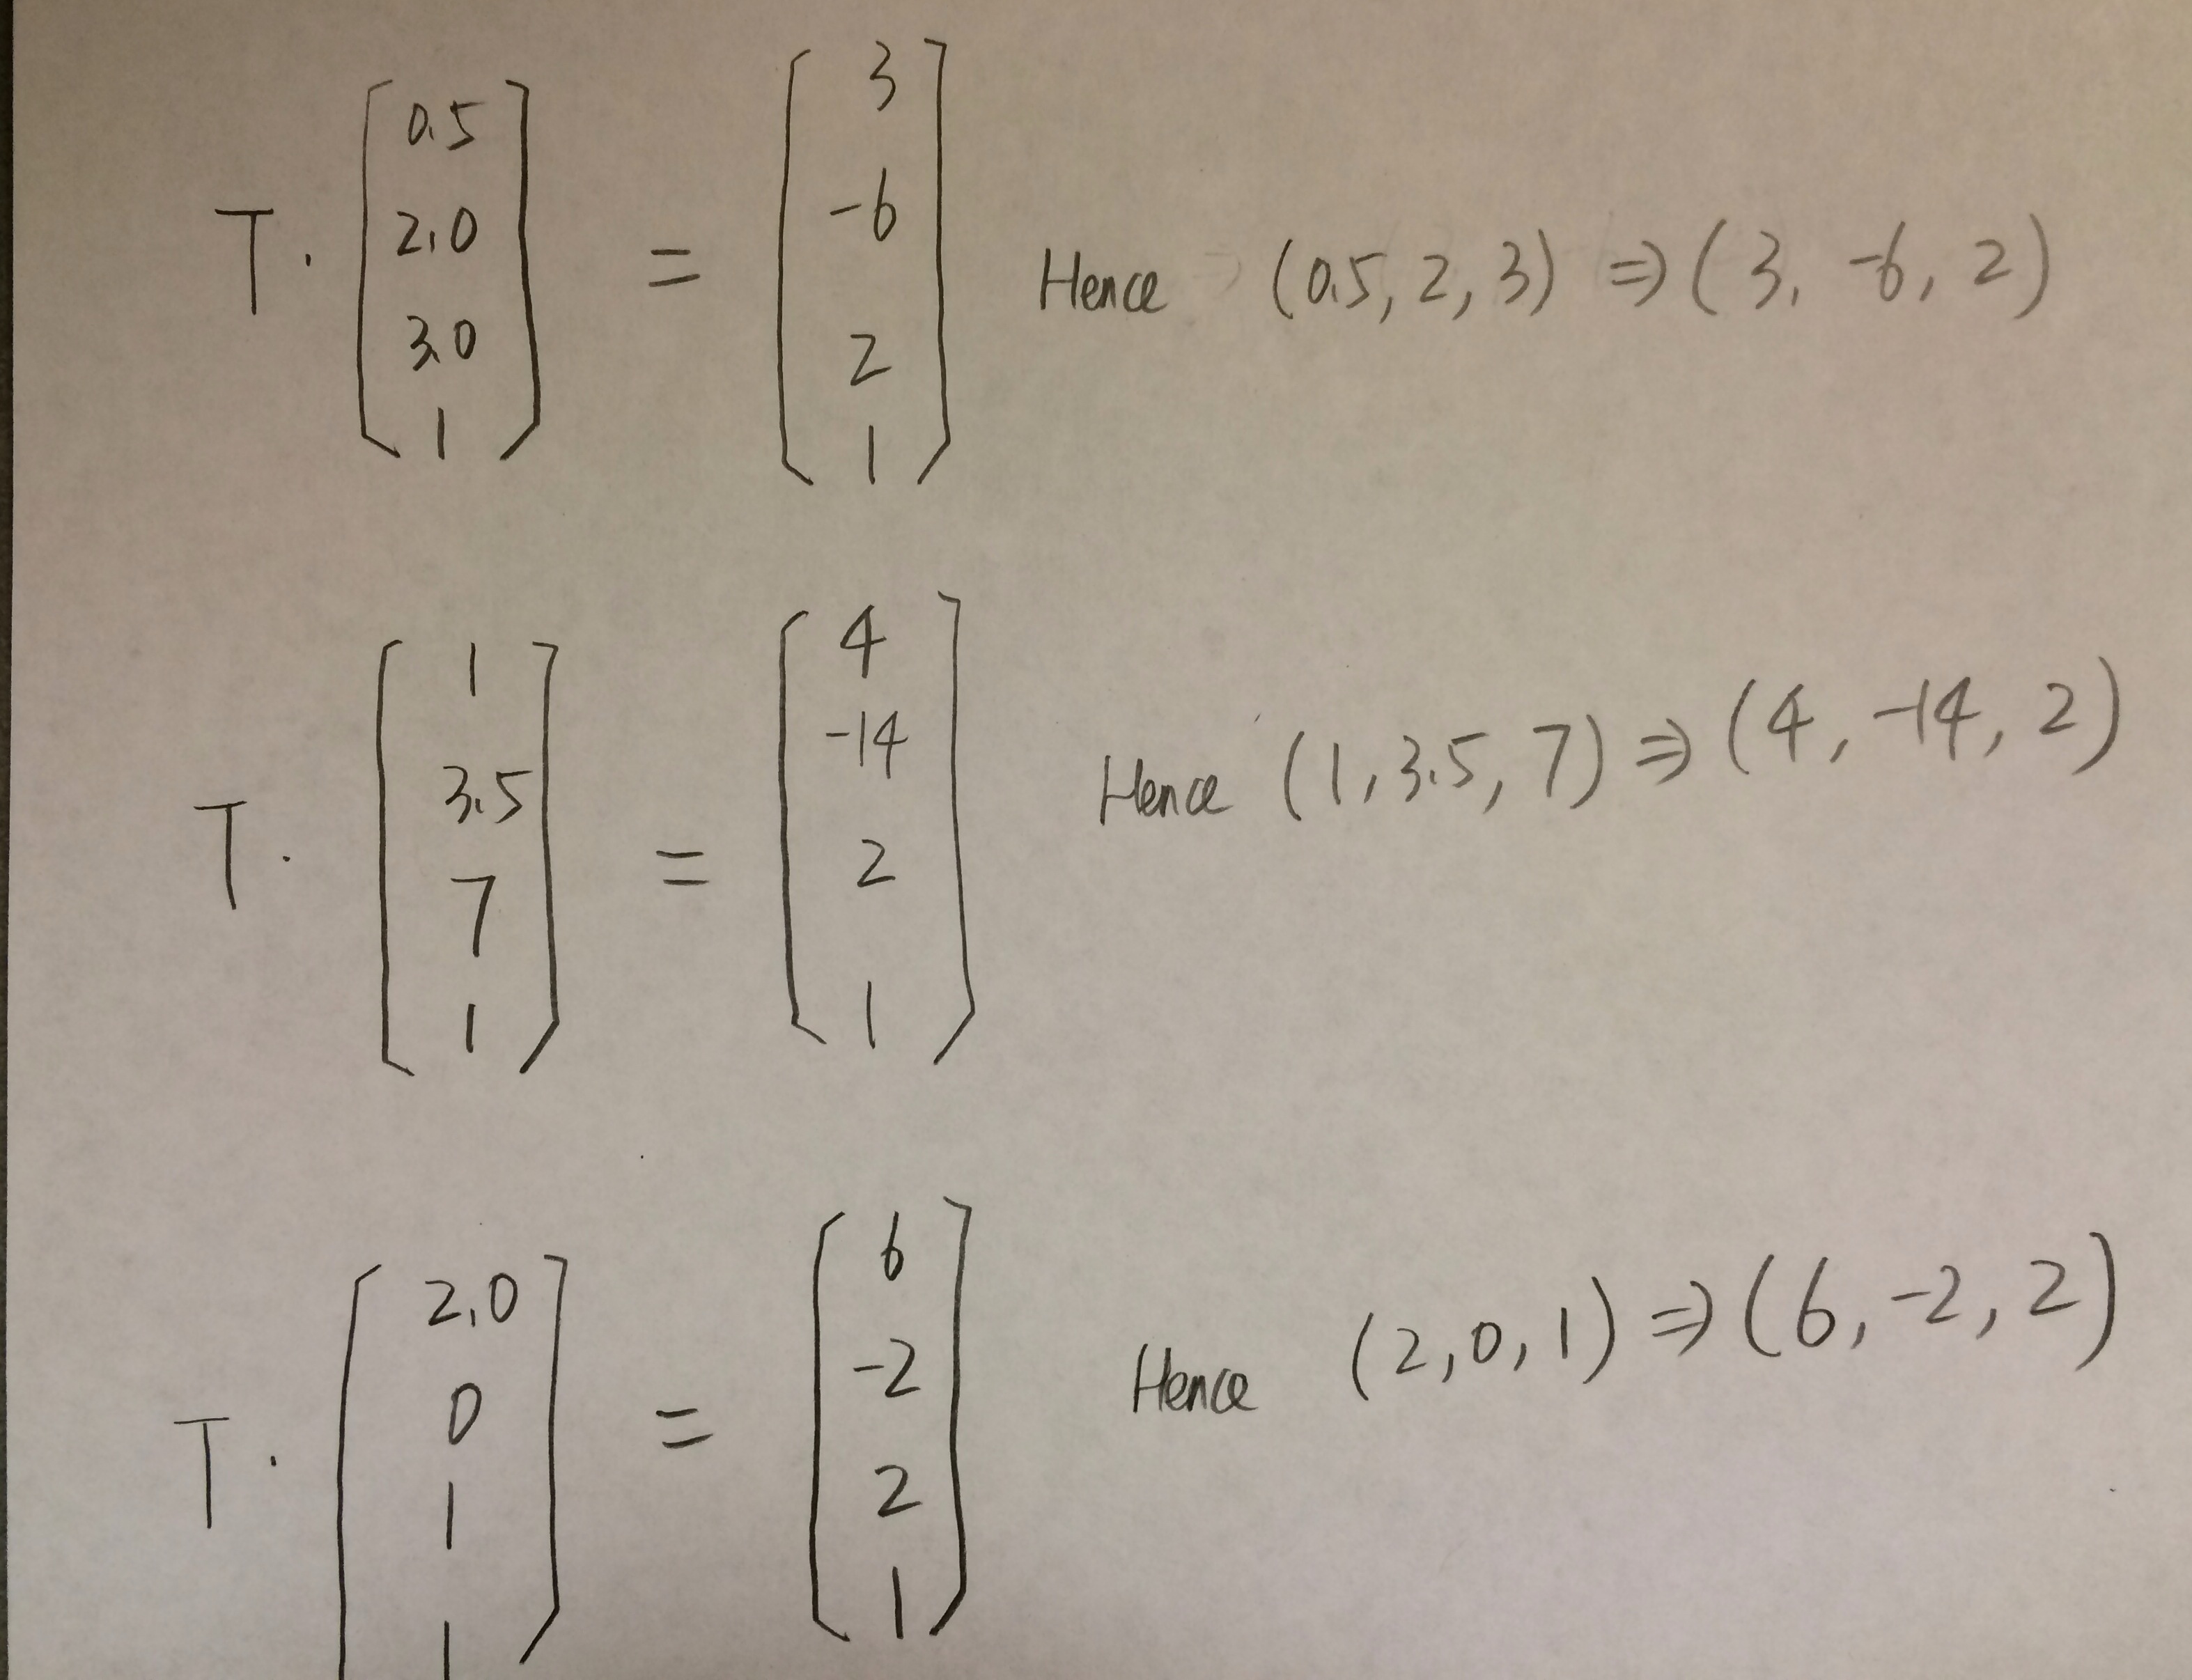 T · [0.5 2.0 3.0 1] = [3 -6 2 1] Hence (0.5, 2, 3) ⇒ (3, -6, 2)
T · [1 3.5 7 1] = [4 -14 2 1] Hence (1, 3.5, 7) ⇒ (4, -14, 2)
T · [2.0 0 1 1] = [6 -2 2 1] Hence (2, 0, 1) ⇒ (6, -2, 2)